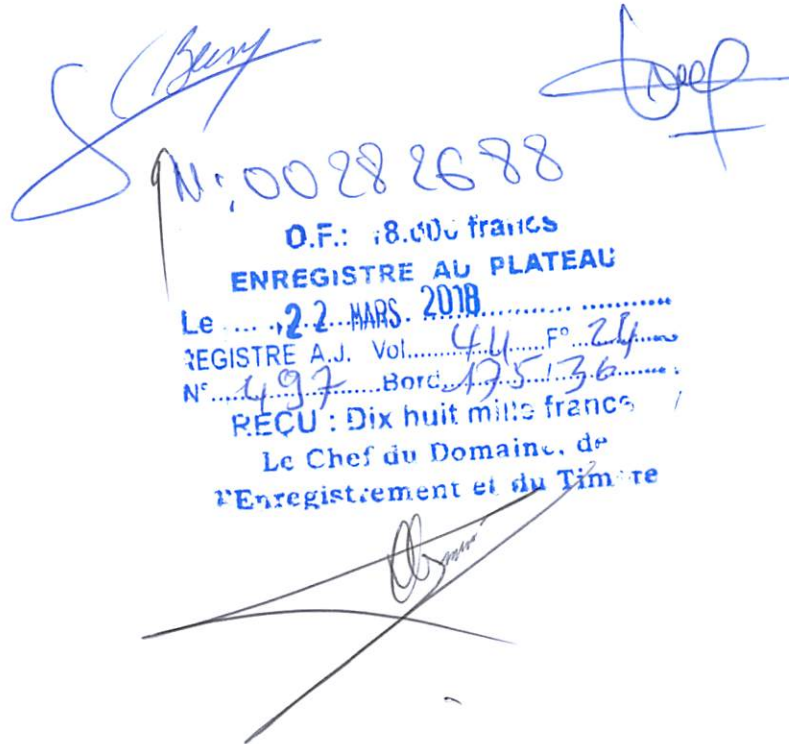 N: 00282688
O.F.: 18.000 francs
ENREGISTRE AU PLATEAU
Le .... 22 MARS. 2018 ....................
REGISTRE A.J. Vol....... 44 ..... F° .. 24 ......
N° ..... 497 ..... Bord. 175 / 36 ........
REÇU : Dix huit mille francs
Le Chef du Domaine, de
l'Enregistrement et du Timbre